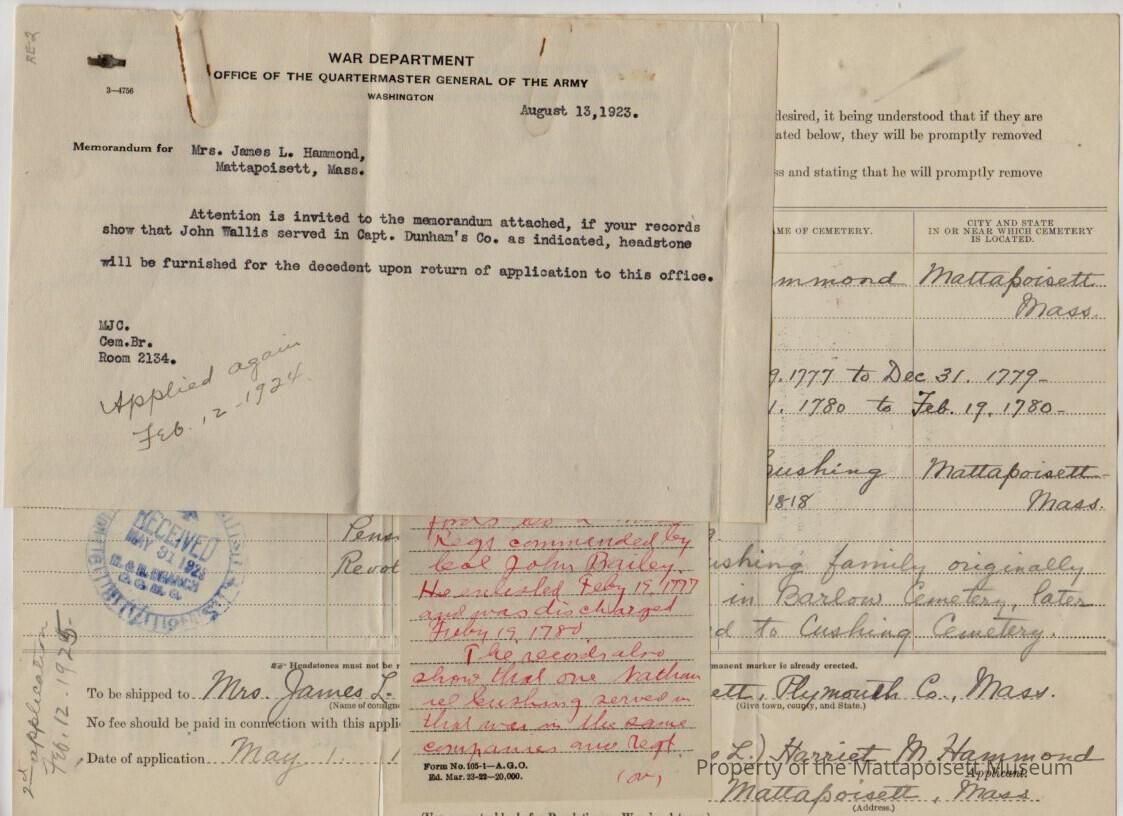 RE-2
WAR DEPARTMENT
OFFICE OF THE QUARTERMASTER GENERAL OF THE ARMY
WASHINGTON
3—4756
August 13,1923.
Memorandum for Mrs. James L. Hammond,
Mattapoisett, Mass.
Attention is invited to the memorandum attached, if your records
show that John Wallis served in Capt. Dunham's Co. as indicated, headstone
will be furnished for the decedent upon return of application to this office.
MJC.
Cem.Br.
Room 2134.
Applied again
Feb. 12-1924.
desired, it being understood that if they are
ated below, they will be promptly removed
ss and stating that he will promptly remove
AME OF CEMETERY.
CITY AND STATE
IN OR NEAR WHICH CEMETERY
IS LOCATED.
mmond Mattapoisett
Mass.
9.1777 to Dec 31. 1779-
1. 1780 to Feb. 19. 1780-
Cushing Mattapoisett-
1818 Mass.
Pens
Revol
RECEIVED
MAY 31 1923
Regt commanded by
Col John Bailey.
He enlisted Feby 19, 1777
and was discharged
Feby 19, 1780.
The records also
show that one Nathan
iel Cushing served in
that war in the same
companies and Regt.
(ov)
Form No. 105-1—A.G.O.
Ed. Mar. 23-22—20,000.
ushing family originally
in Barlow Cemetery, later
d to Cushing Cemetery.
Headstones must not be r
manent marker is already erected.
To be shipped to Mrs. James L.
(Name of consigne
ett, Plymouth Co., Mass.
(Give town, county, and State.)
No fee should be paid in connection with this appli
Date of application May 1. 1
e L.) Harriet M. Hammond
Applicant.
Mattapoisett, Mass
(Address.)
2nd application
Feb. 12. 1925-
Property of the Mattapoisett Museum